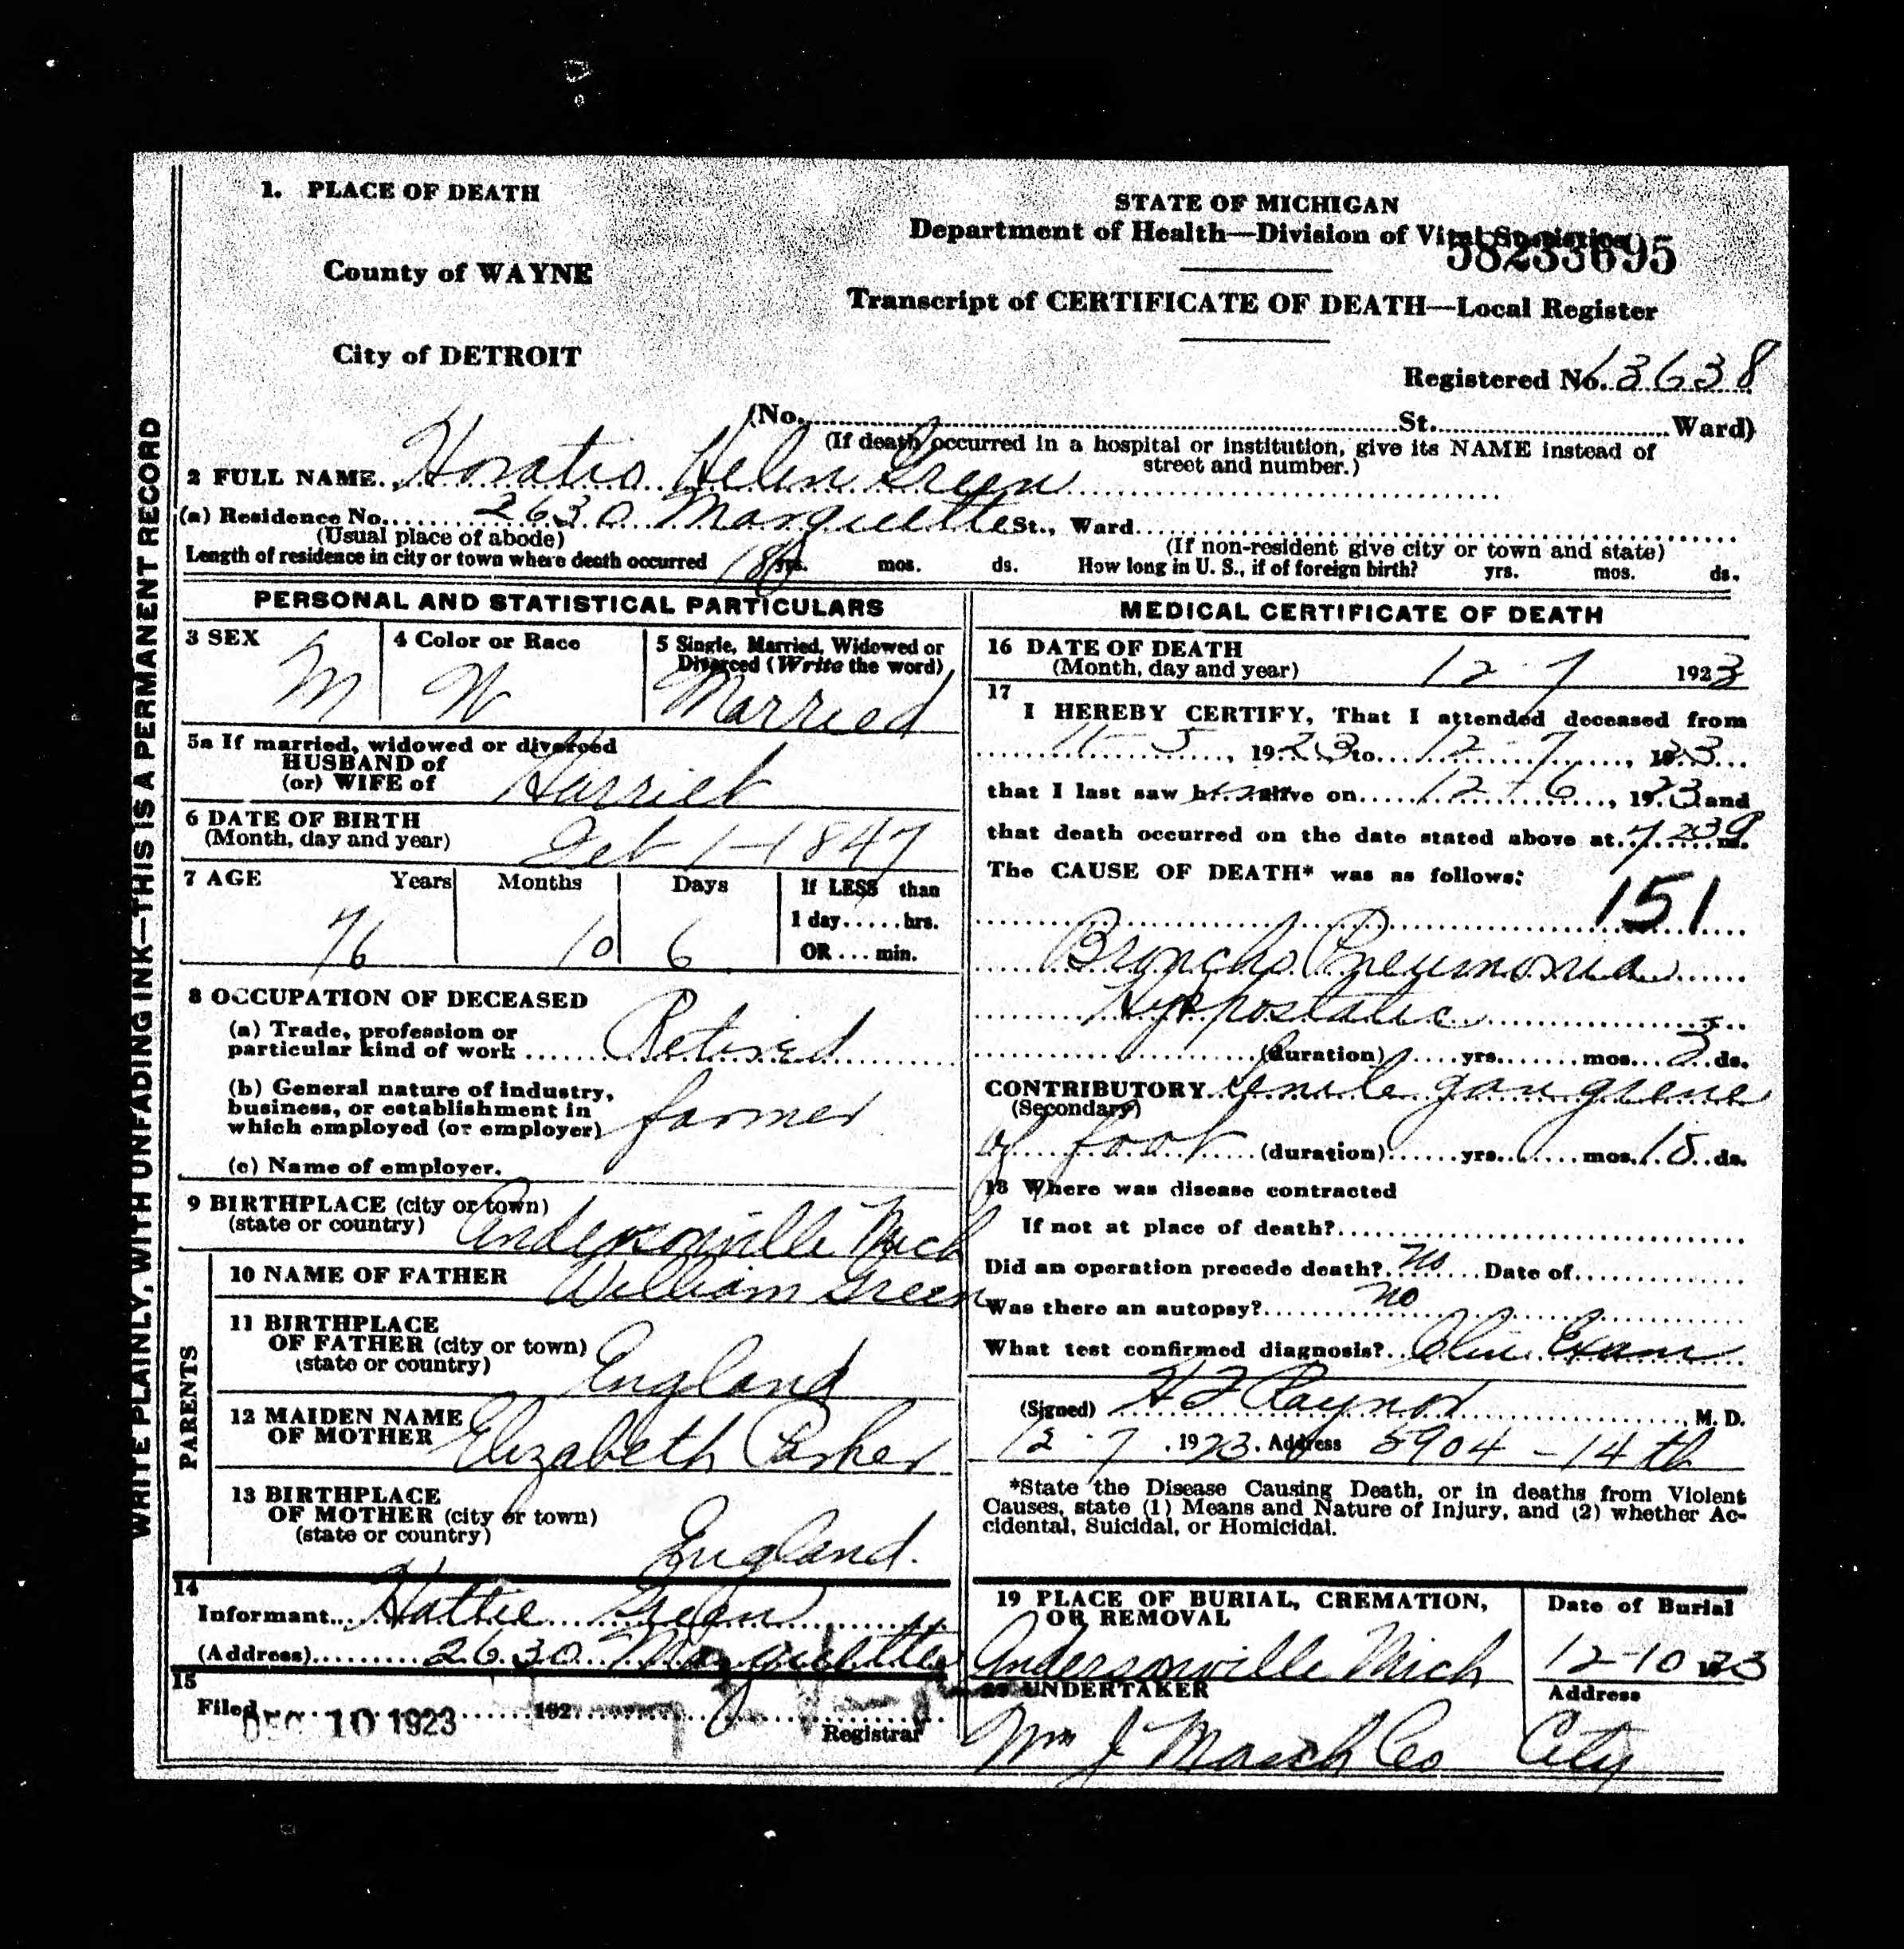 1. PLACE OF DEATH
County of WAYNE
City of DETROIT
STATE OF MICHIGAN
Department of Health—Division of Vital Statistics
58233695
Transcript of CERTIFICATE OF DEATH—Local Register
Registered No. 13638
(No. St. Ward)
(If death occurred in a hospital or institution, give its NAME instead of street and number.)
2 FULL NAME. Horatio Helen Green
(a) Residence No. 2630 Marquette St., Ward
(Usual place of abode)
(If non-resident give city or town and state)
Length of residence in city or town where death occurred 18 yrs. mos. ds. How long in U. S., if of foreign birth? yrs. mos. ds.
PERSONAL AND STATISTICAL PARTICULARS
3 SEX M
4 Color or Race W
5 Single, Married, Widowed or Divorced (Write the word) Married
5a If married, widowed or divorced
HUSBAND of
(or) WIFE of Harriet
6 DATE OF BIRTH
(Month, day and year) 1-1847
7 AGE Years Months Days If LESS than
1 day......hrs.
76 10 6 OR ... min.
8 OCCUPATION OF DECEASED
(a) Trade, profession or
particular kind of work Retired
(b) General nature of industry,
business, or establishment in
which employed (or employer) farmer
(c) Name of employer.
9 BIRTHPLACE (city or town)
(state or country) Andersonville Mich
PARENTS
10 NAME OF FATHER William Green
11 BIRTHPLACE
OF FATHER (city or town)
(state or country) England
12 MAIDEN NAME
OF MOTHER Elizabeth
13 BIRTHPLACE
OF MOTHER (city or town)
(state or country) England.
14
Informant Hattie Green
(Address) 2630 Marquette
15
Filed DEC 10 1923 192
Registrar
MEDICAL CERTIFICATE OF DEATH
16 DATE OF DEATH
(Month, day and year) 12-7 1923
17
I HEREBY CERTIFY, That I attended deceased from
11-5, 1923 to 12-7, 1923
that I last saw him alive on 12-6, 1923 and
that death occurred on the date stated above at m.
The CAUSE OF DEATH* was as follows:
151
Broncho Pneumonia
Hypostatic
(duration) yrs. mos. 3 ds.
CONTRIBUTORY Senile gangrene
(Secondary)
of foot (duration) yrs. mos. 15 ds.
18 Where was disease contracted
If not at place of death?
Did an operation precede death? No Date of
Was there an autopsy? no
What test confirmed diagnosis? Clin. Exam
(Signed) H F Raynor, M. D.
12-7, 1923. Address 5904-14th
*State the Disease Causing Death, or in deaths from Violent
Causes, state (1) Means and Nature of Injury, and (2) whether Ac-
cidental, Suicidal, or Homicidal.
19 PLACE OF BURIAL, CREMATION,
OR REMOVAL
Andersonville Mich
Date of Burial
12-10 23
20 UNDERTAKER
Wm J Co
Address
City
WRITE PLAINLY, WITH UNFADING INK—THIS IS A PERMANENT RECORD